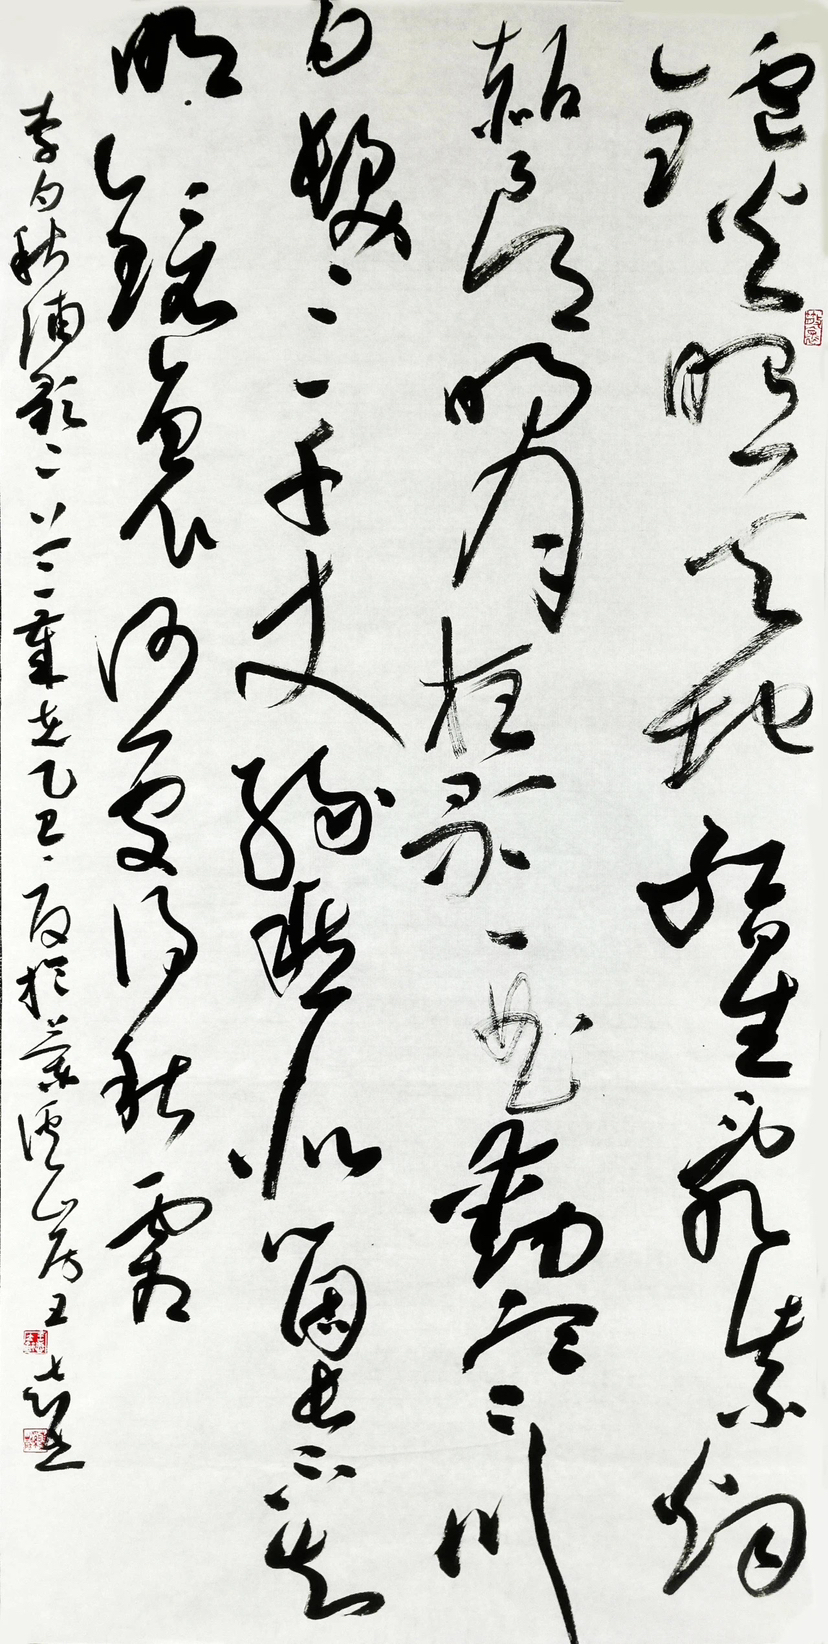 鑪火照天地紅星亂紫烟
赧郎明月歌曲動寒川
白髮三千丈緣愁似箇長不知
明鏡裏何處得秋霜
李白秋浦歌二首乙巳夏於溪山居王